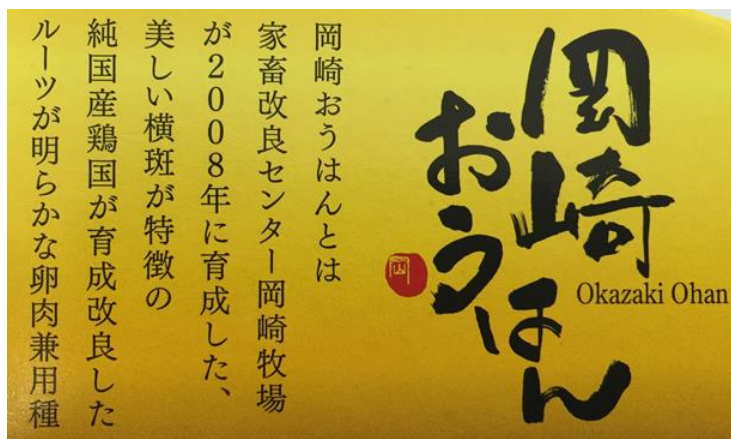 岡崎
おうはん
Okazaki Ohan
岡崎おうはんとは
家畜改良センター岡崎牧場
が2008年に育成した、
美しい横斑が特徴の
純国産鶏国が育成改良した
ルーツが明らかな卵肉兼用種